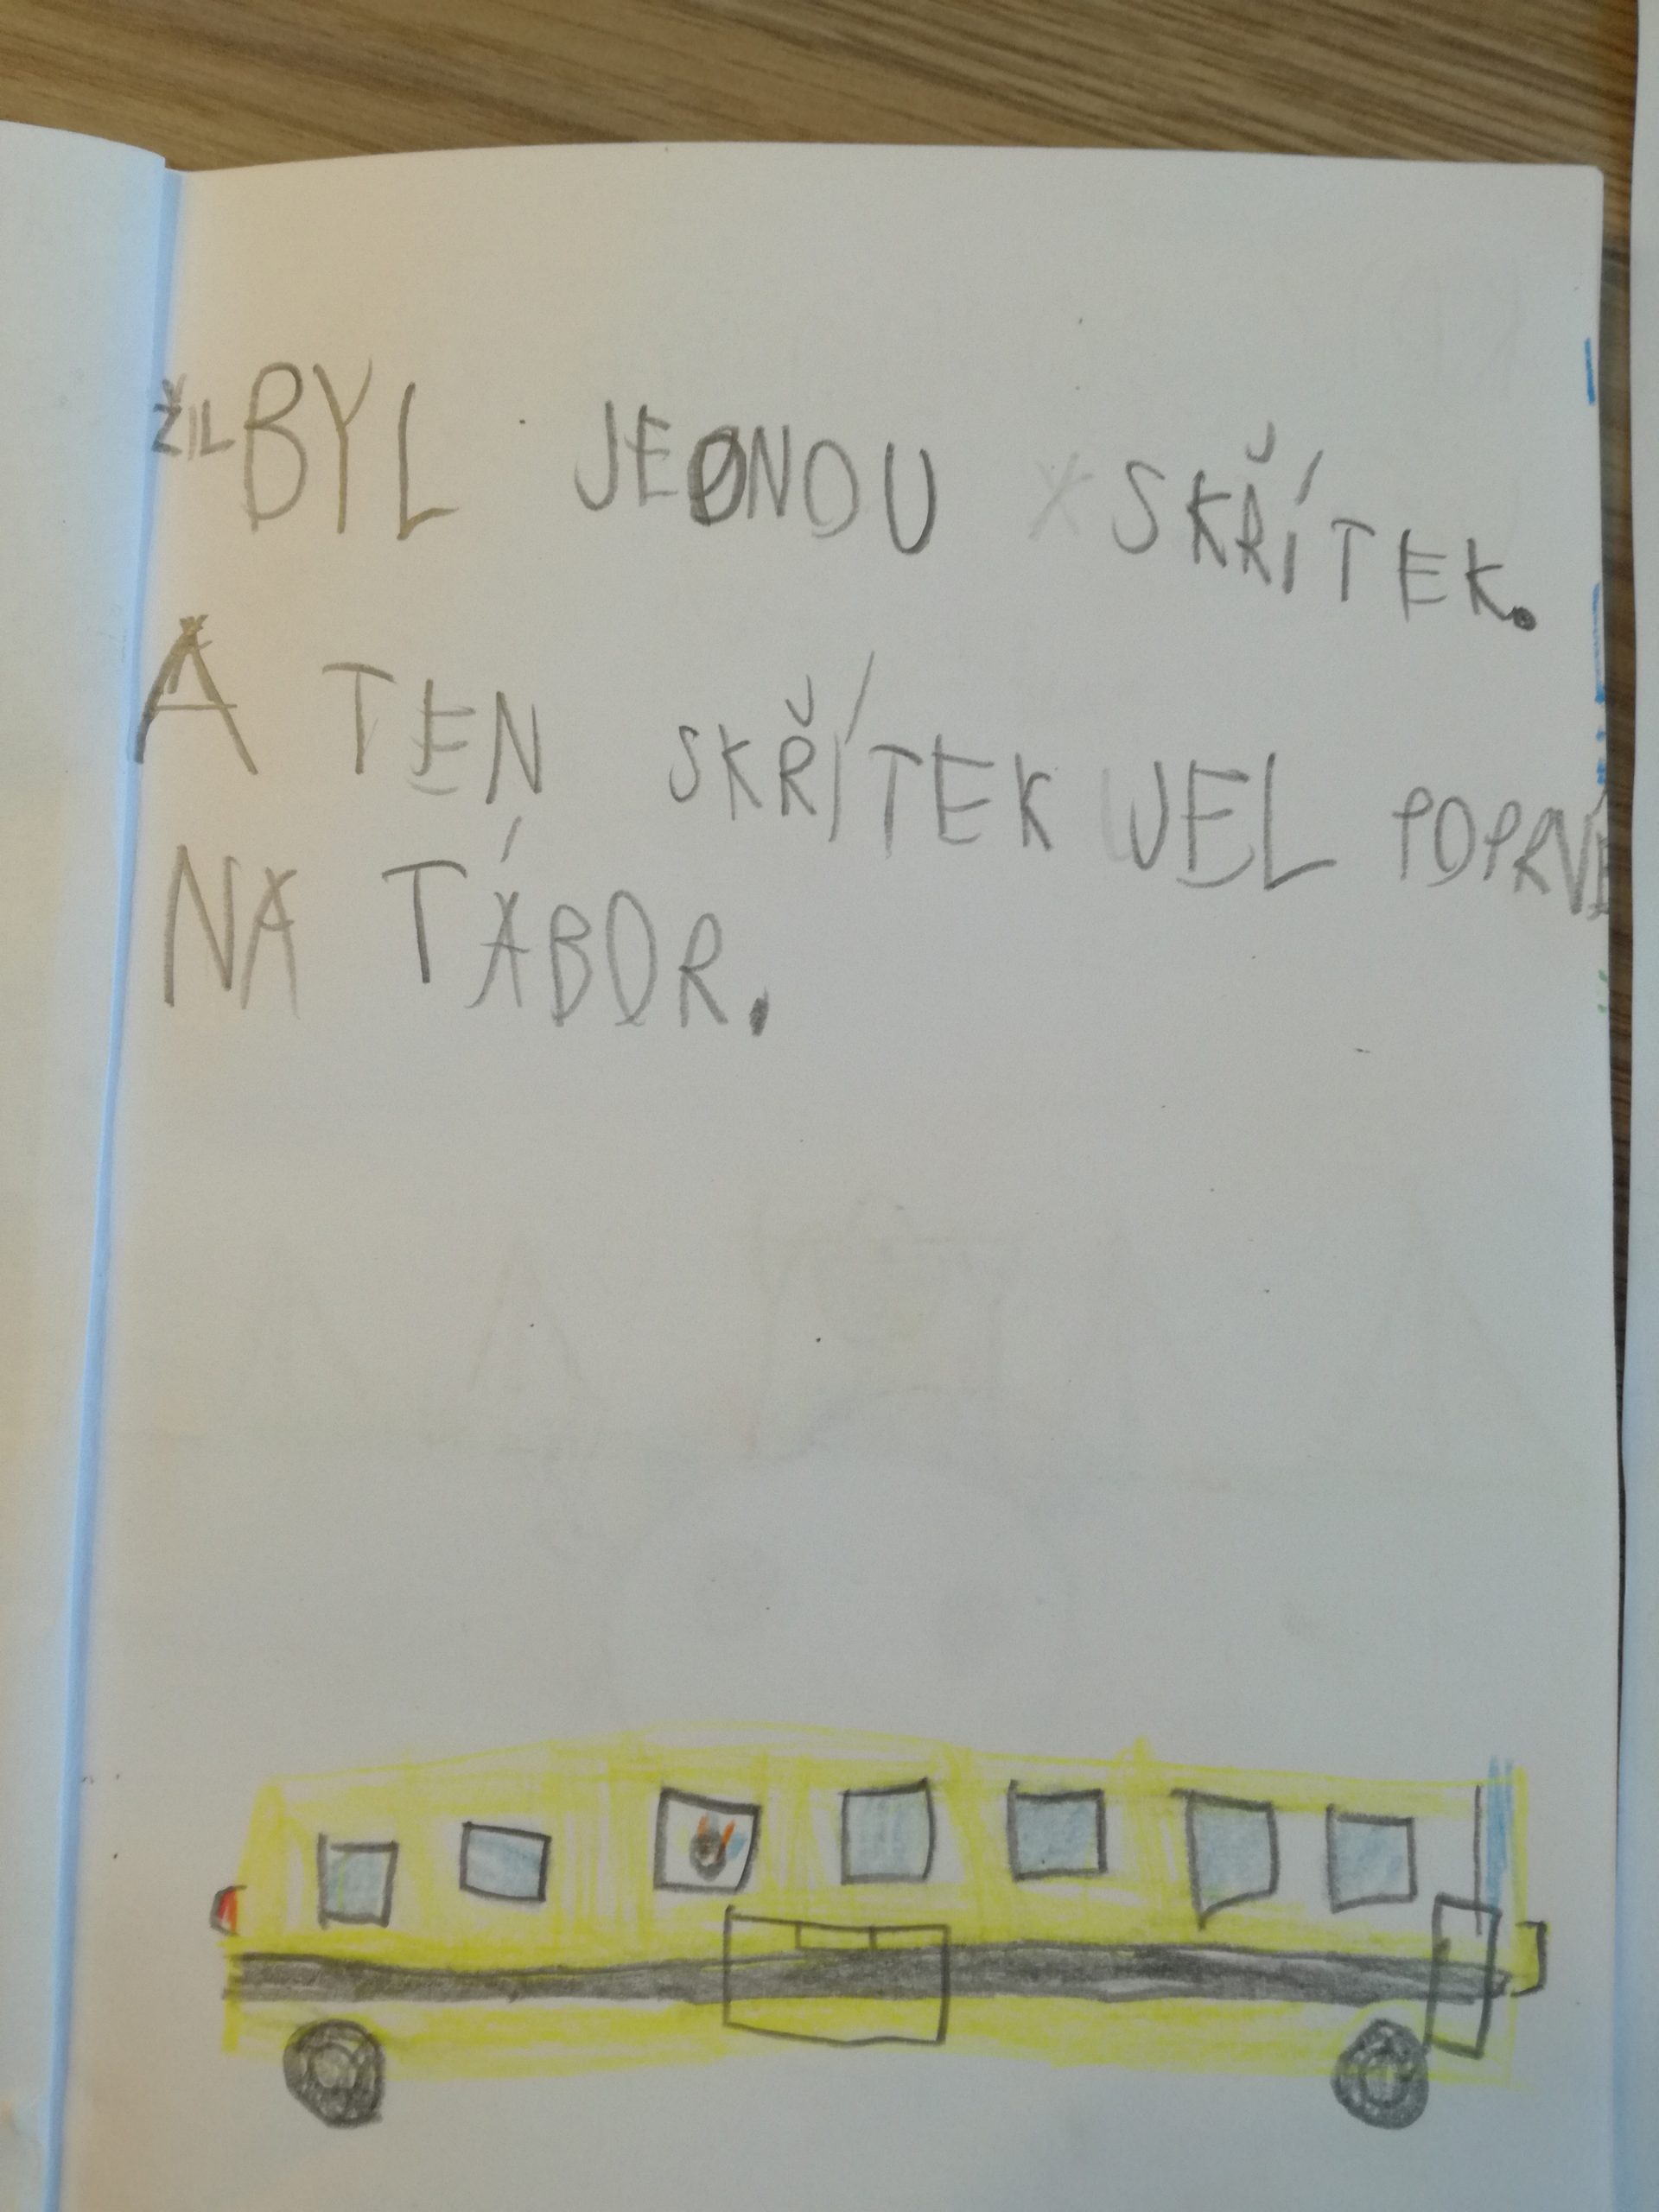 ŽIL BYL JEDNOU SKŘÍTEK.
A TEN SKŘÍTEK JEL POPRVÉ
NA TÁBOR.